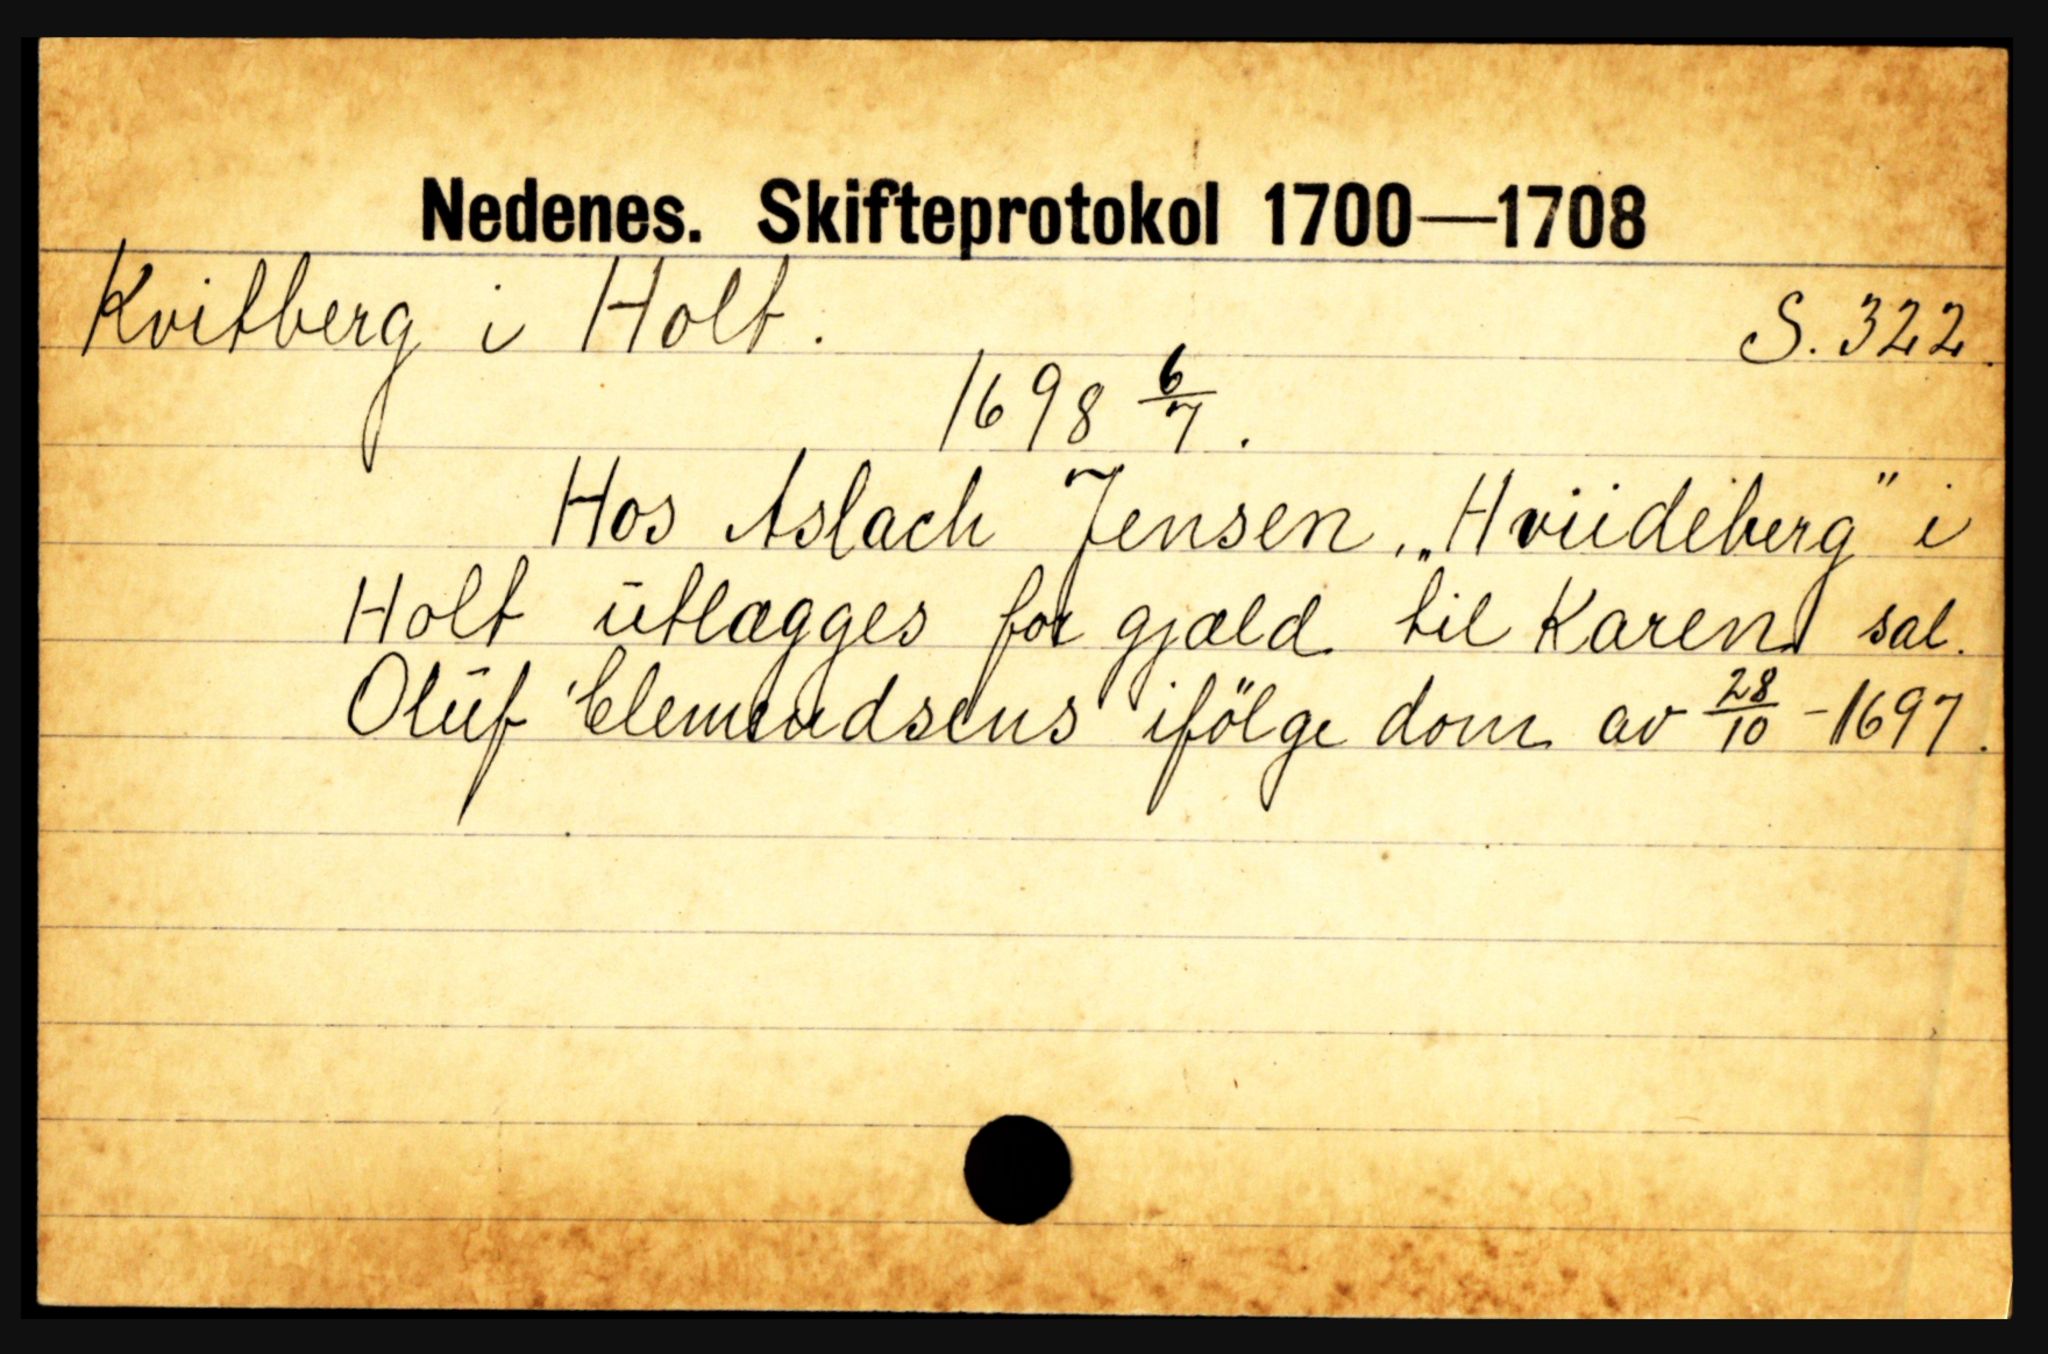 Nedenes. Skifteprotokol 1700—1708
Kvitberg i Holt. S. 322.
1698 6/7.
Hos Aslach Jensen „Hviideberg" i
Holt utlægges for gjæld til Karen sal.
Oluf Clemendsens ifölge dom av 28/10 - 1697.